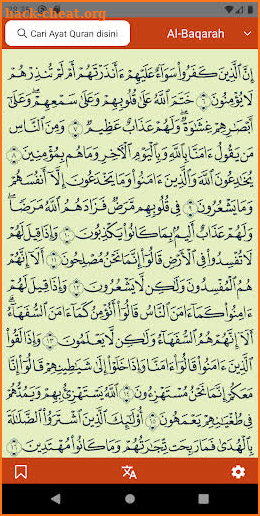 Cari Ayat Quran disini
Al-Baqarah
إِنَّ الَّذِينَ كَفَرُوا سَوَاءٌ عَلَيْهِمْ ءَأَنذَرْتَهُمْ أَمْ لَمْ تُنذِرْهُمْ
لَا يُؤْمِنُونَ ٦ خَتَمَ اللَّهُ عَلَىٰ قُلُوبِهِمْ وَعَلَىٰ سَمْعِهِمْ ۖ وَعَلَىٰ
أَبْصَٰرِهِمْ غِشَٰوَةٌ ۖ وَلَهُمْ عَذَابٌ عَظِيمٌ ٧ وَمِنَ النَّاسِ
مَن يَقُولُ ءَامَنَّا بِاللَّهِ وَبِالْيَوْمِ الْءَاخِرِ وَمَا هُم بِمُؤْمِنِينَ ٨
يُخَٰدِعُونَ اللَّهَ وَالَّذِينَ ءَامَنُوا وَمَا يَخْدَعُونَ إِلَّا أَنفُسَهُمْ
وَمَا يَشْعُرُونَ ٩ فِي قُلُوبِهِم مَّرَضٌ فَزَادَهُمُ اللَّهُ مَرَضًا ۖ
وَلَهُمْ عَذَابٌ أَلِيمٌ بِمَا كَانُوا يَكْذِبُونَ ١٠ وَإِذَا قِيلَ لَهُمْ
لَا تُفْسِدُوا فِي الْأَرْضِ قَالُوا إِنَّمَا نَحْنُ مُصْلِحُونَ ١١ أَلَا إِنَّهُمْ
هُمُ الْمُفْسِدُونَ وَلَٰكِن لَّا يَشْعُرُونَ ١٢ وَإِذَا قِيلَ لَهُمْ
ءَامِنُوا كَمَا ءَامَنَ النَّاسُ قَالُوا أَنُؤْمِنُ كَمَا ءَامَنَ السُّفَهَاءُ ۗ
أَلَا إِنَّهُمْ هُمُ السُّفَهَاءُ وَلَٰكِن لَّا يَعْلَمُونَ ١٣ وَإِذَا لَقُوا
الَّذِينَ ءَامَنُوا قَالُوا ءَامَنَّا وَإِذَا خَلَوْا إِلَىٰ شَيَٰطِينِهِمْ قَالُوا إِنَّا
مَعَكُمْ إِنَّمَا نَحْنُ مُسْتَهْزِءُونَ ١٤ اللَّهُ يَسْتَهْزِئُ بِهِمْ وَيَمُدُّهُمْ
فِي طُغْيَٰنِهِمْ يَعْمَهُونَ ١٥ أُولَٰئِكَ الَّذِينَ اشْتَرَوُا الضَّلَٰلَةَ
بِالْهُدَىٰ فَمَا رَبِحَت تِّجَٰرَتُهُمْ وَمَا كَانُوا مُهْتَدِينَ ١٦
hack-cheat.org